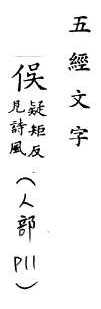 五經文字
俁 疑矩反
見詩風
(人部
P11)